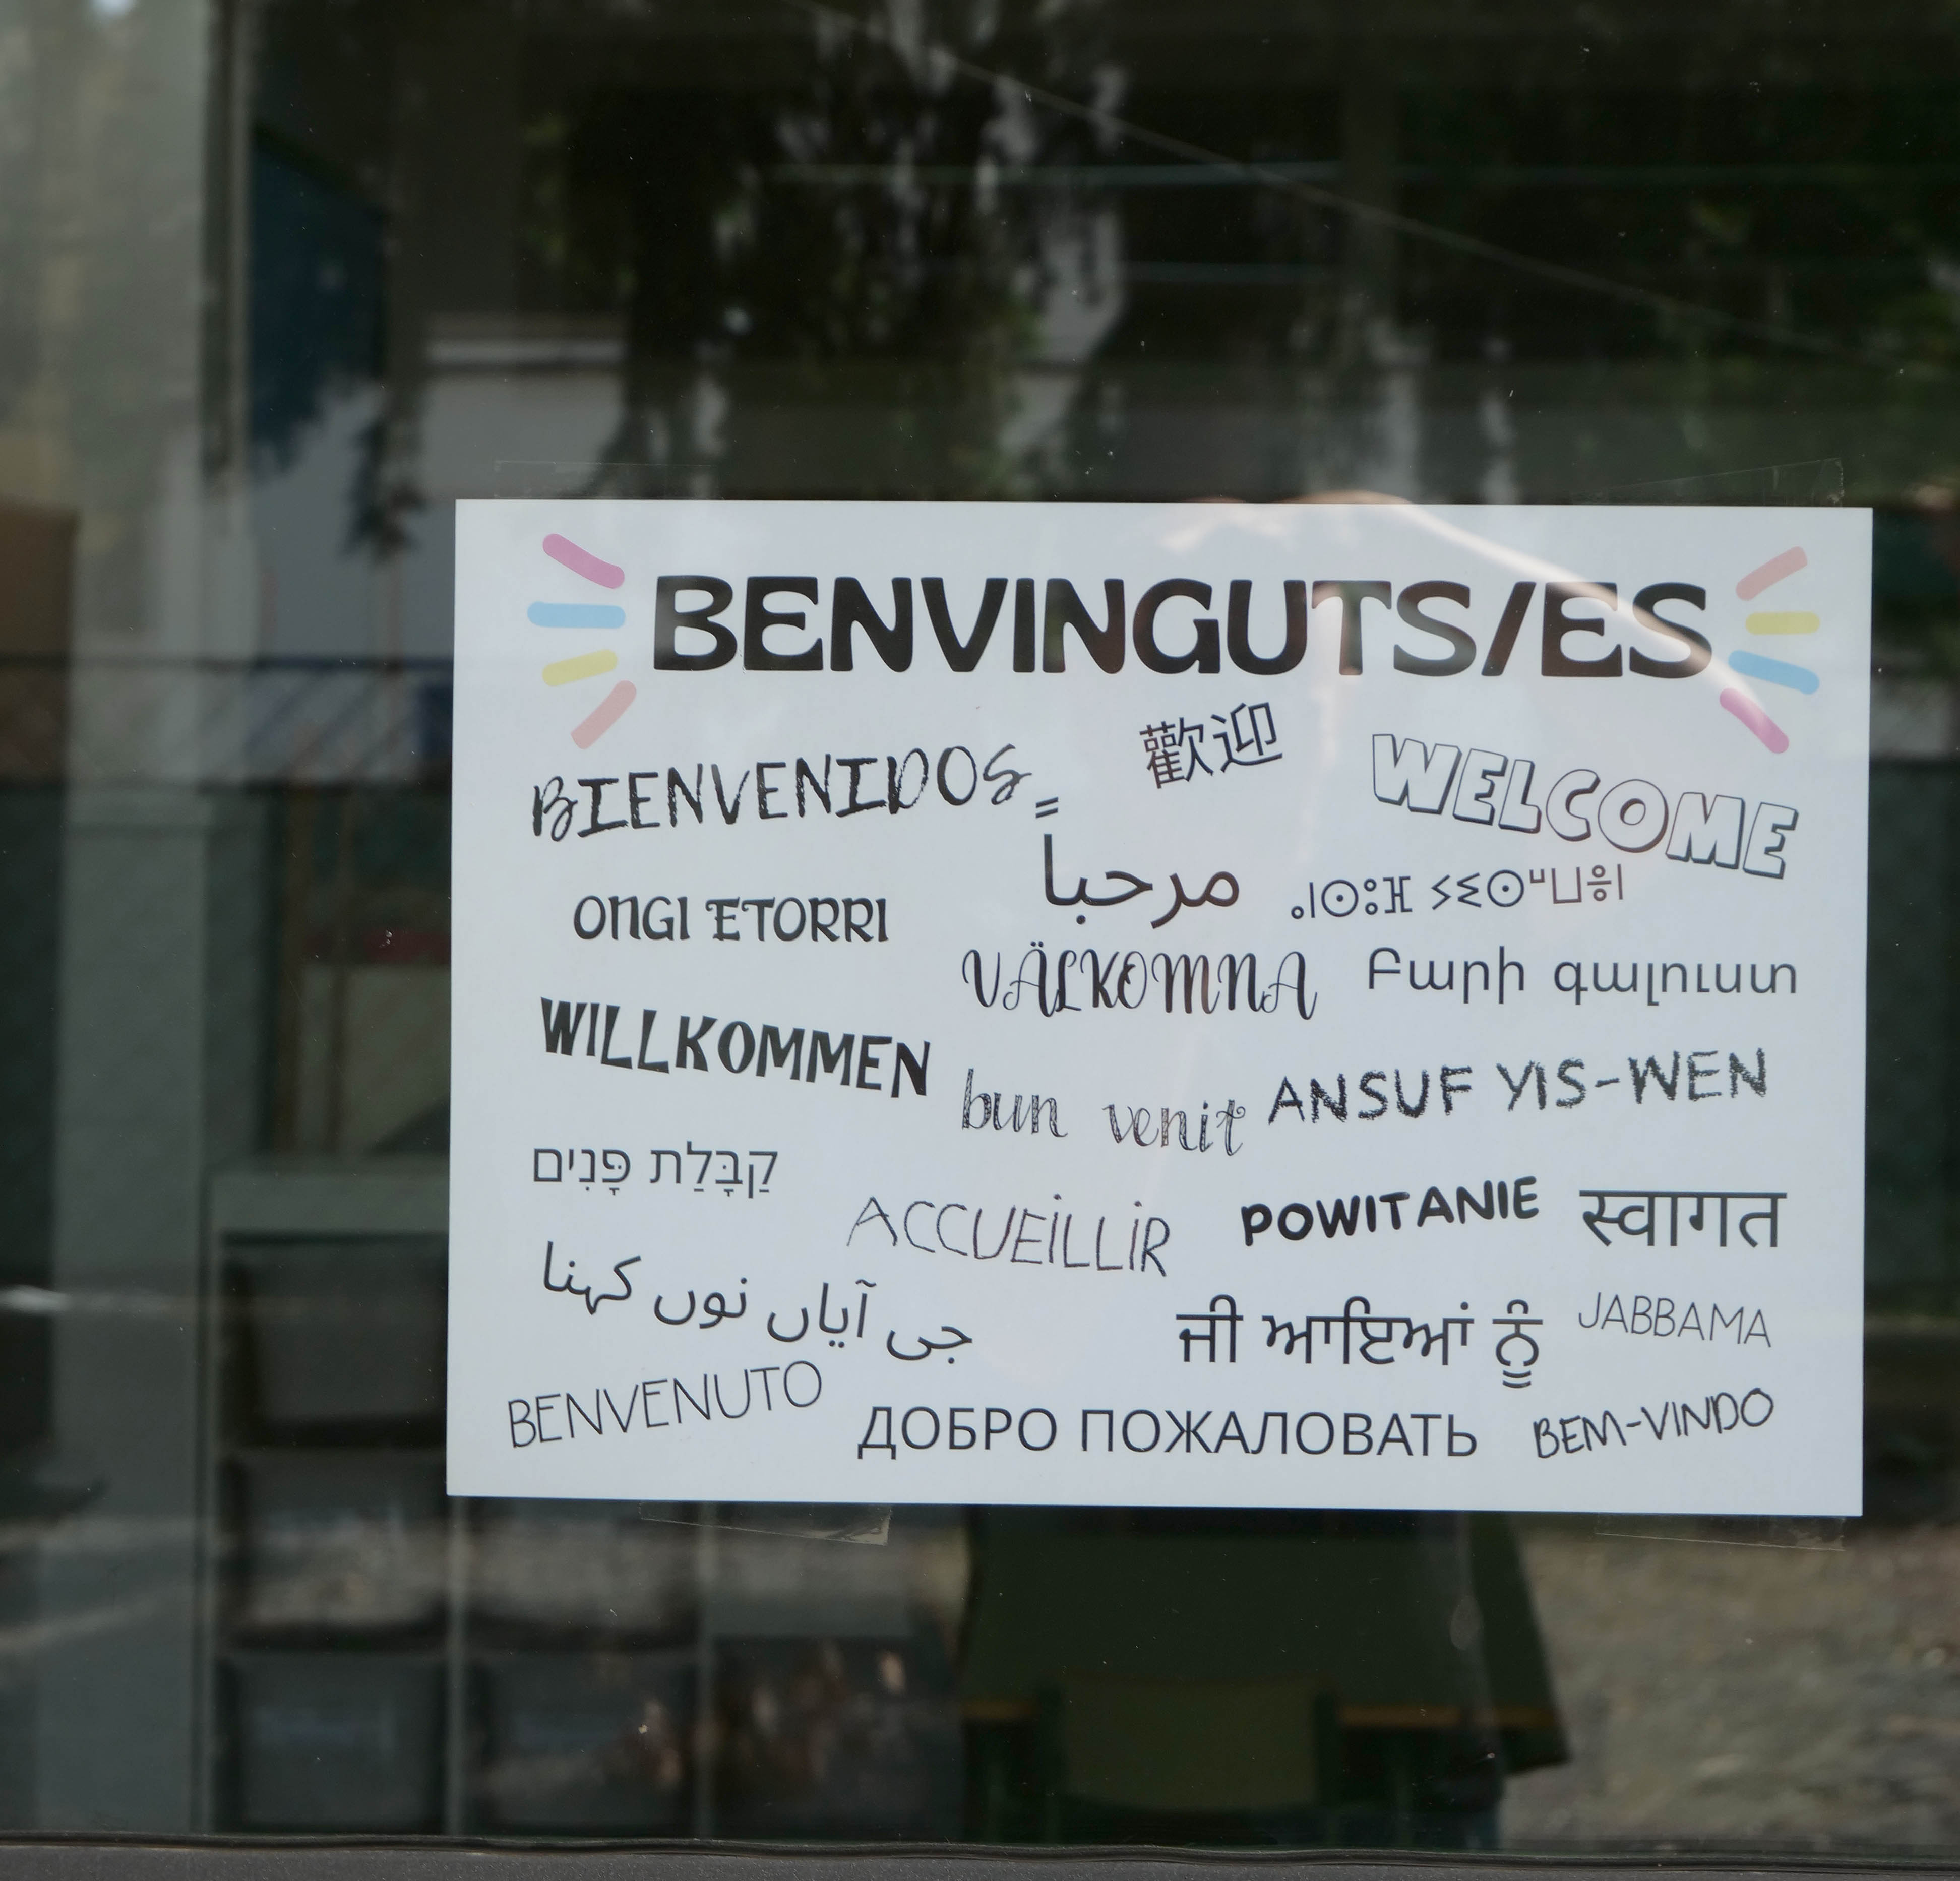 BENVINGUTS/ES
歡迎
BIENVENIDOS
WELCOME
مرحبا
ONGI ETORRI
ⴰⵏⵙⵓⴼ ⵢⵉⵙⵯⵡⴻⵏ
VÄLKOMNA
Բարի գալուստ
WILLKOMMEN
bun venit
ANSUF YIS-WEN
קַבָּלַת פָּנִים
ACCUEILLIR
POWITANIE
स्वागत
جی آیاں نوں کہنا
ਜੀ ਆਇਆਂ ਨੂੰ
JABBAMA
BENVENUTO
ДОБРО ПОЖАЛОВАТЬ
BEM-VINDO